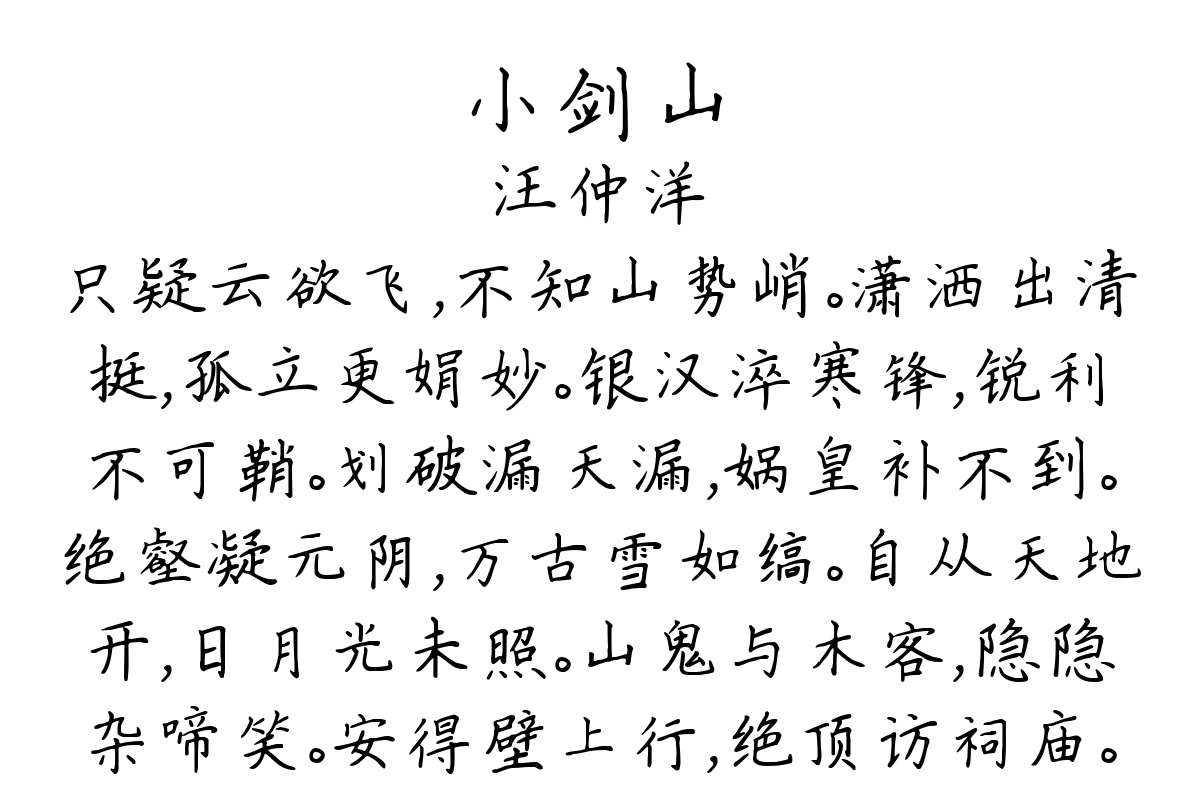 小剑山
汪仲洋
只疑云欲飞,不知山势峭。潇洒出清
挺,孤立更娟妙。银汉淬寒锋,锐利
不可鞘。划破漏天漏,娲皇补不到。
绝壑凝元阴,万古雪如缟。自从天地
开,日月光未照。山鬼与木客,隐隐
杂啼笑。安得壁上行,绝顶访祠庙。